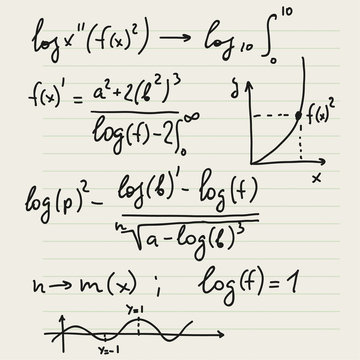 log x''(f(x)²) → log₁₀ ∫₀¹⁰
f(x)' = (a²+2(b²)³)/(log(f)-2∫₀^∞)
y
f(x)²
x
log(p)² - (log(b)' - log(f))/ⁿ√(a-log(b)³)
n → m(x) ; log(f) = 1
y=1
y=-1